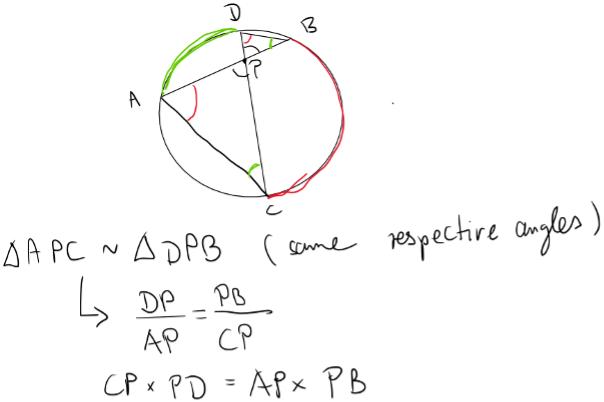 D
B
P
A
C
△APC ~ △DPB (same respective angles)
↳ DP/AP = PB/CP
CP × PD = AP × PB